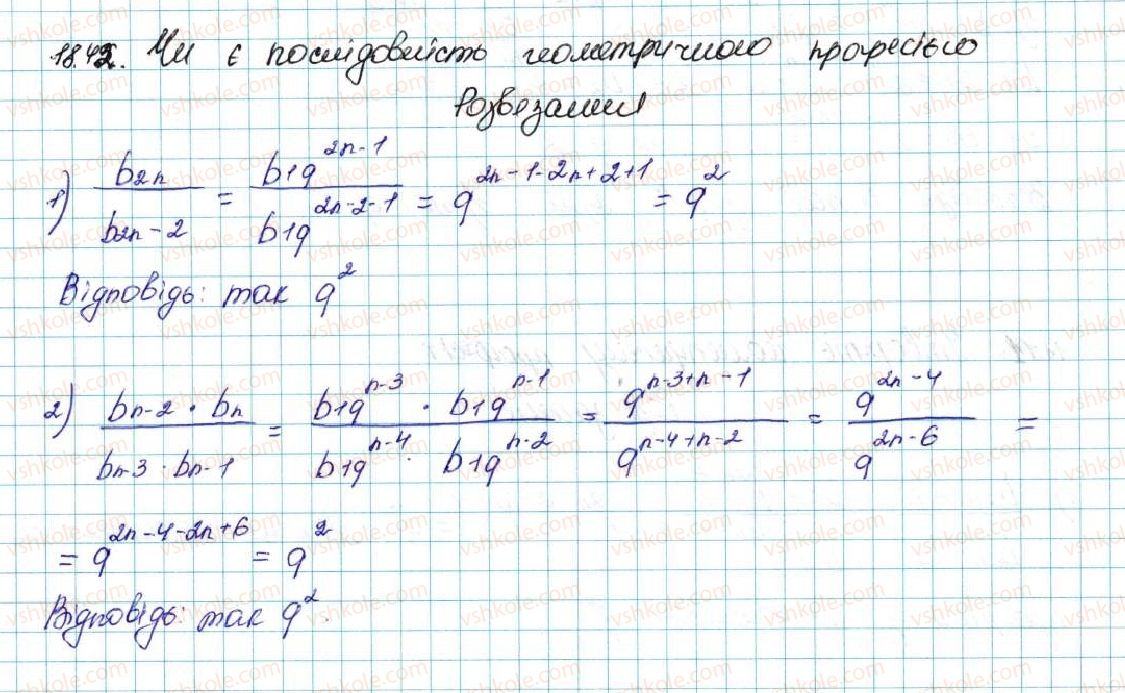 18.42. Чи є послідовність геометричною прогресією
Розвезання
1) b2n / b2n-2 = b1q^2n-1 / b1q^2n-2-1 = q^2n-1-2n+2+1 = q^2
Відповідь: так q^2
2) bn-2 · bn / bn-3 · bn-1 = b1q^n-3 · b1q^n-1 / b1q^n-4 · b1q^n-2 = q^n-3+n-1 / q^n-4+n-2 = q^2n-4 / q^2n-6 =
= q^2n-4-2n+6 = q^2
Відповідь: так q^2.
vshkole.com